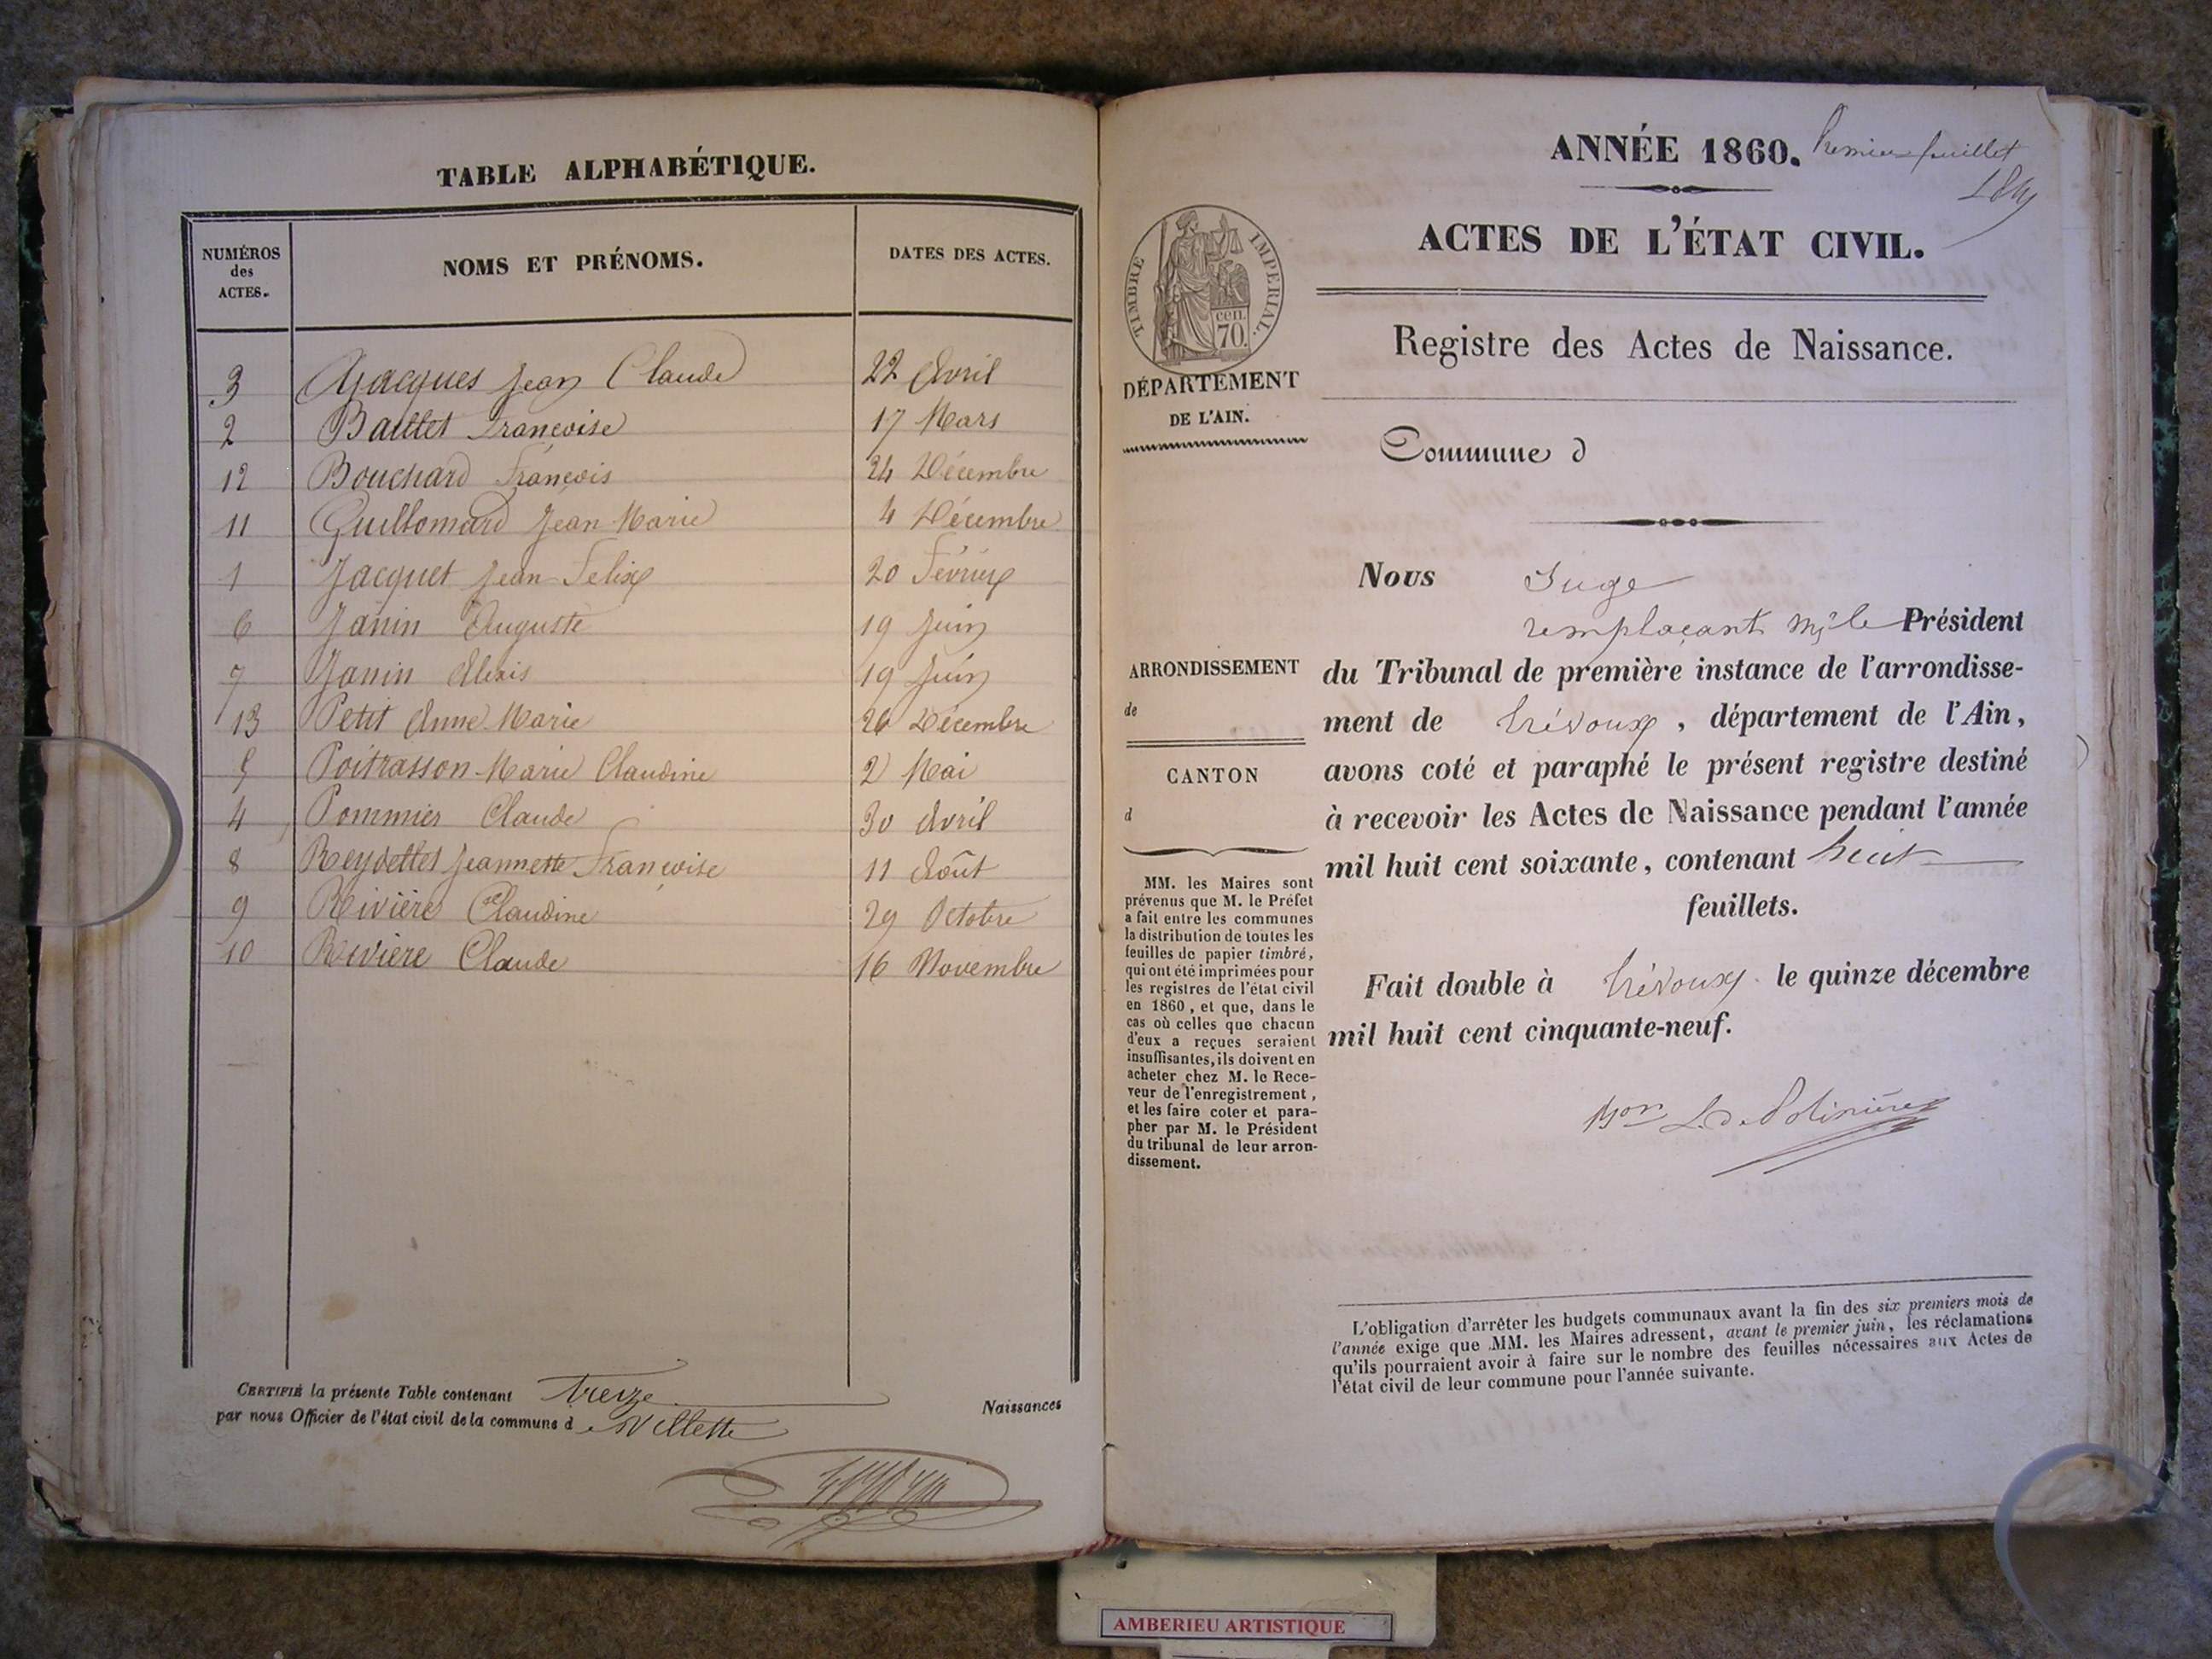 TABLE ALPHABÉTIQUE.
NUMÉROS des ACTES. NOMS ET PRÉNOMS. DATES DES ACTES.
3 Ajacques Jean Claude 22 Avril
2 Baillet Francoise 17 Mars
12 Bouchard François 24 Décembre
11 Guillomard Jean Marie 4 Décembre
1 Jacquet Jean Felix 20 Février
6 Janin Auguste 19 Juin
7 Janin Alexis 19 Juin
13 Petit Anne Marie 26 Décembre
5 Poitrasson Marie Claudine 2 Mai
4 Pommier Claude 30 Avril
8 Reydellet Jeannette Françoise 11 Août
9 Rivière Claudine 29 Octobre
10 Rivière Claude 16 Novembre
CERTIFIÉ la présente Table contenant Treize Naissances
par nous Officier de l'état civil de la commune de Villette
ANNÉE 1860. Premier feuillet
ACTES DE L'ÉTAT CIVIL.
TIMBRE IMPÉRIAL.
CEN. 70.
DÉPARTEMENT
DE L'AIN.
Registre des Actes de Naissance.
Commune d
Nous Juge
remplaçant Mr le Président
du Tribunal de première instance de l'arrondisse-
ment de Trévoux, département de l'Ain,
avons coté et paraphé le présent registre destiné
à recevoir les Actes de Naissance pendant l'année
mil huit cent soixante, contenant huit
feuillets.
Fait double à Trévoux le quinze décembre
mil huit cent cinquante-neuf.
ARRONDISSEMENT
de
CANTON
d
MM. les Maires sont
prévenus que M. le Préfet
a fait entre les communes
la distribution de toutes les
feuilles de papier timbré,
qui ont été imprimées pour
les registres de l'état civil
en 1860, et que, dans le
cas où celles que chacun
d'eux a reçues seraient
insuffisantes, ils doivent en
acheter chez M. le Rece-
veur de l'enregistrement,
et les faire coter et para-
pher par M. le Président
du tribunal de leur arron-
dissement.
L'obligation d'arrêter les budgets communaux avant la fin des six premiers mois de
l'année exige que MM. les Maires adressent, avant le premier juin, les réclamations
qu'ils pourraient avoir à faire sur le nombre des feuilles nécessaires aux Actes de
l'état civil de leur commune pour l'année suivante.
AMBERIEU ARTISTIQUE